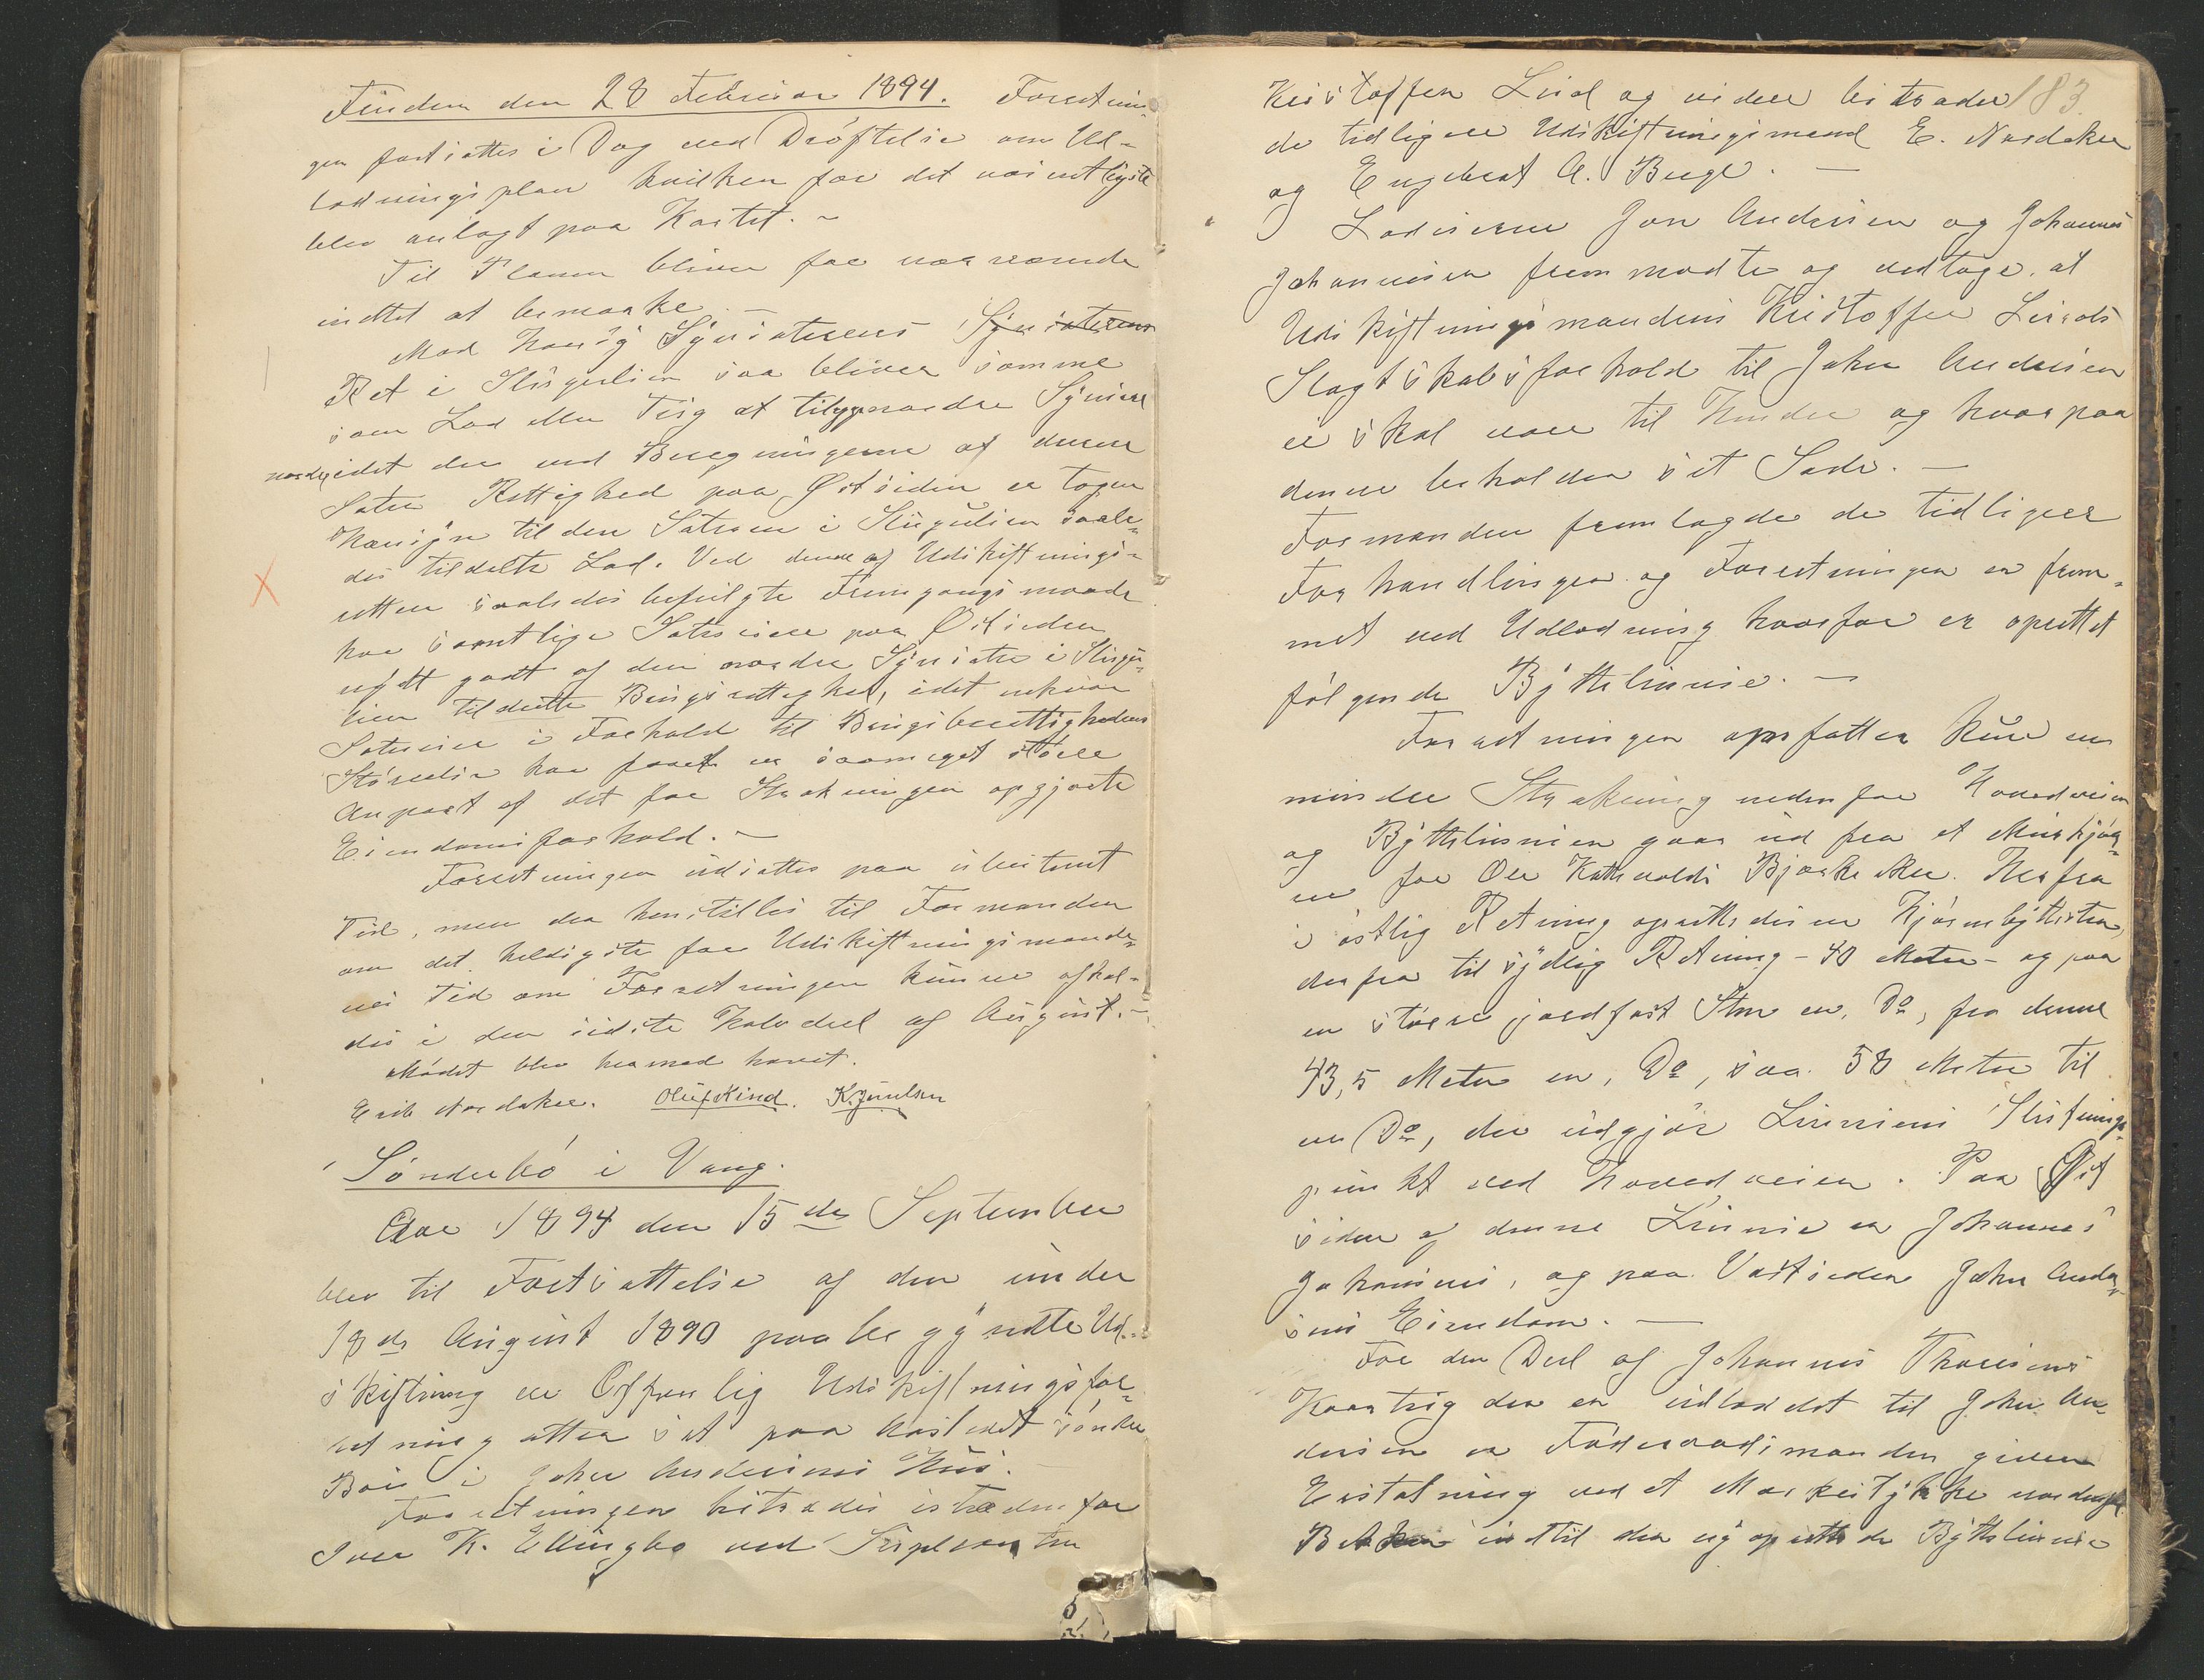 Finden den 28 Februar 1894. Forretnin-
gen fortsattes i Dag med Drøftelse om Ud-
lodningsplan hvilken for det væsentligste
blev anlagt paa Kartet. -
Til Planen bliver for nærværende
indtet at bemærke. -
Mod Synsæterens Synsæterens
Ret i Slirgulien saa bliver samme
som Lod eller Teig at tilgrændse Synsæ
nordre idet der ved Beregningerne af denne
Sæter Rettighed paa Østsiden er tagen
Hensyn til den Sæteren i Slirgulien saale-
des tildelte Lod. Ved denne af Udskiftnings-
retten saaledes befulgte Fremgangsmaade
har samtlige Sætereiere paa Østsiden
nydt godt af den nordre Synsæter i Slirgu-
lien tildelte Brugsrettighed, idet enhver
Sætereier i Forhold til Brugsberettighedens
Størrelse har faaet en saameget større
Anpart af det for Strækningen opgjorte
Eiendomsforhold. -
Forretningen udsattes paa ubestemt
Tid, men der henstilles til Formanden
om det heldigste for Udskiftningsmænde-
nes Tid om Forretningen kunne afhol-
des i den sidste Halvdeel af August. -
Mødet blev hermed hævet.
Erik Nordaker. Oluf Kind. K. Juulsen
Sønderbø i Vang.
Aar 1894 den 15de September
blev til Fortsættelse af den under
18de August 1890 paabegyndte Ud-
skiftning en Offenlig Udskiftningsfor-
retning atter sat paa Aastedet søndre
Bøe i John Andersens Hus. -
Forretningen bitrædes istædenfor
Iver K. Ellingbø ved Suplianten
183
Kristoffer Lird og videre bitræder
de tidligere Udskiftningsmænd E. Nordaker
og Engebret A. Berge. -
Lodeierne Jon Andersen og Johannes
Johannesen fremmødte og vedtoge, at
Udskiftningsmandens Kristoffer Lirds
Slagtskabsforhold til John Andersen
ei skal være til Hinder og hvorpaa
denne beholder sit Sæde. -
Formanden fremlagde de tidligere
Forhandlinger og Forretningen er frem-
met ved Udlodning hvorfor er oprettet
følgende Byttelinnie. -
Forretningen opfatter kun en
mindre Strækning nedenfor Hovedveien
og Byttelinnien gaar ud fra et Merkjør-
ne for Ole Kattevolds Bjørke. Herfra
i østlig Retning oprettedes en Hjørnbyttesten,
derfra til sydlig Retning - 40 Meter - og paa
en større jordfast Sten en, Do, fra denne
43,5 Meter en, Do, saa 58 Meter til
en Do, der udgjør Linniens Slutnings-
punkt ved Hovedveien. Paa Øst
siden af denne Linnie er Johannes
Johannes, og paa Vestsiden John Ander-
sens Eiendom. -
For den Deel af Johannes Thoresens
Kaarteig der er udloddet til John An-
dersen er Føderaadsmanden given
Erstatning ved et Markestykke nordenfor
Bækken indtil den ny oprettede Byttelinnie